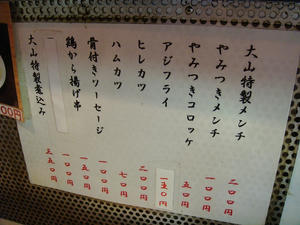 大山特製メンチ 二〇〇円
やみつきメンチ 一〇〇円
やみつきコロッケ 五〇円
アジフライ 一五〇円
ヒレカツ 二〇〇円
ハムカツ 七〇円
骨付きソーセージ 一〇〇円
鶏から揚げ串 一五〇円
一 一〇〇円
大山特製煮込み 三五〇円
00円